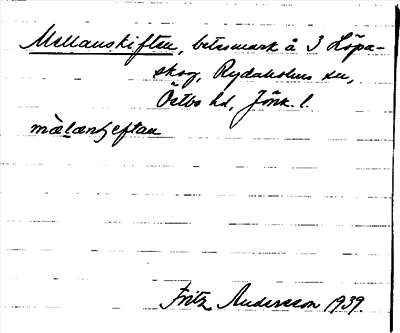 Mellanskiften, betesmark å 3 Löpa-
skog, Rydaholms sn,
Östbo hd, Jönk. l.
mæ̀lænʃeftan
Fritz Andersson 1939.